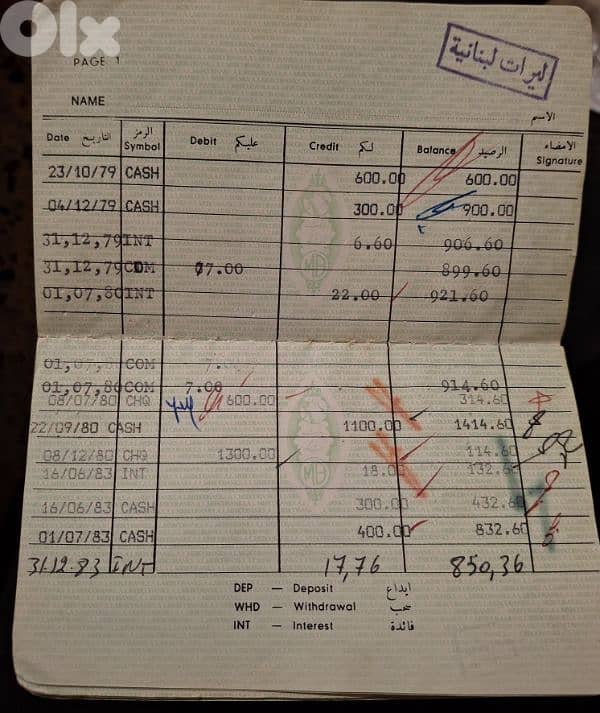 OLX
ليرات لبنانية
PAGE 1
NAME الاسم
Date التاريخ الرمز Symbol Debit عليكم Credit لكم Balance الرصيد الامضاء Signature
23/10/79 CASH 600.00 600.00
04/12/79 CASH 300.00 900.00
31,12,79 INT 6.60 906.60
31,12,79 COM 7.00 899.60
01,07,80 INT 22.00 921.60
01,07,80 COM 7.00
01,07,80 COM 7.00 914.60
08/07/80 CHQ 600.00 314.60
22/09/80 CASH 1100.00 1414.60
08/12/80 CHQ 1300.00 114.60
16/06/83 INT 18.00 132.60
16/06/83 CASH 300.00 432.60
01/07/83 CASH 400.00 832.60
31.12.83 INT 17,76 850,36
DEP — Deposit ايداع
WHD — Withdrawal سحب
INT — Interest فائدة